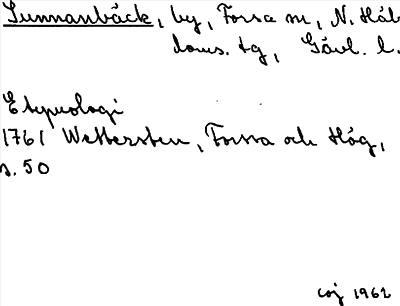 Sunnanbäck, by, Forsa sn, N. Häl
doms. tg, Gävl. l.
Etymologi
1761 Wettersten, Forssa och Hög,
s. 50
coj 1962